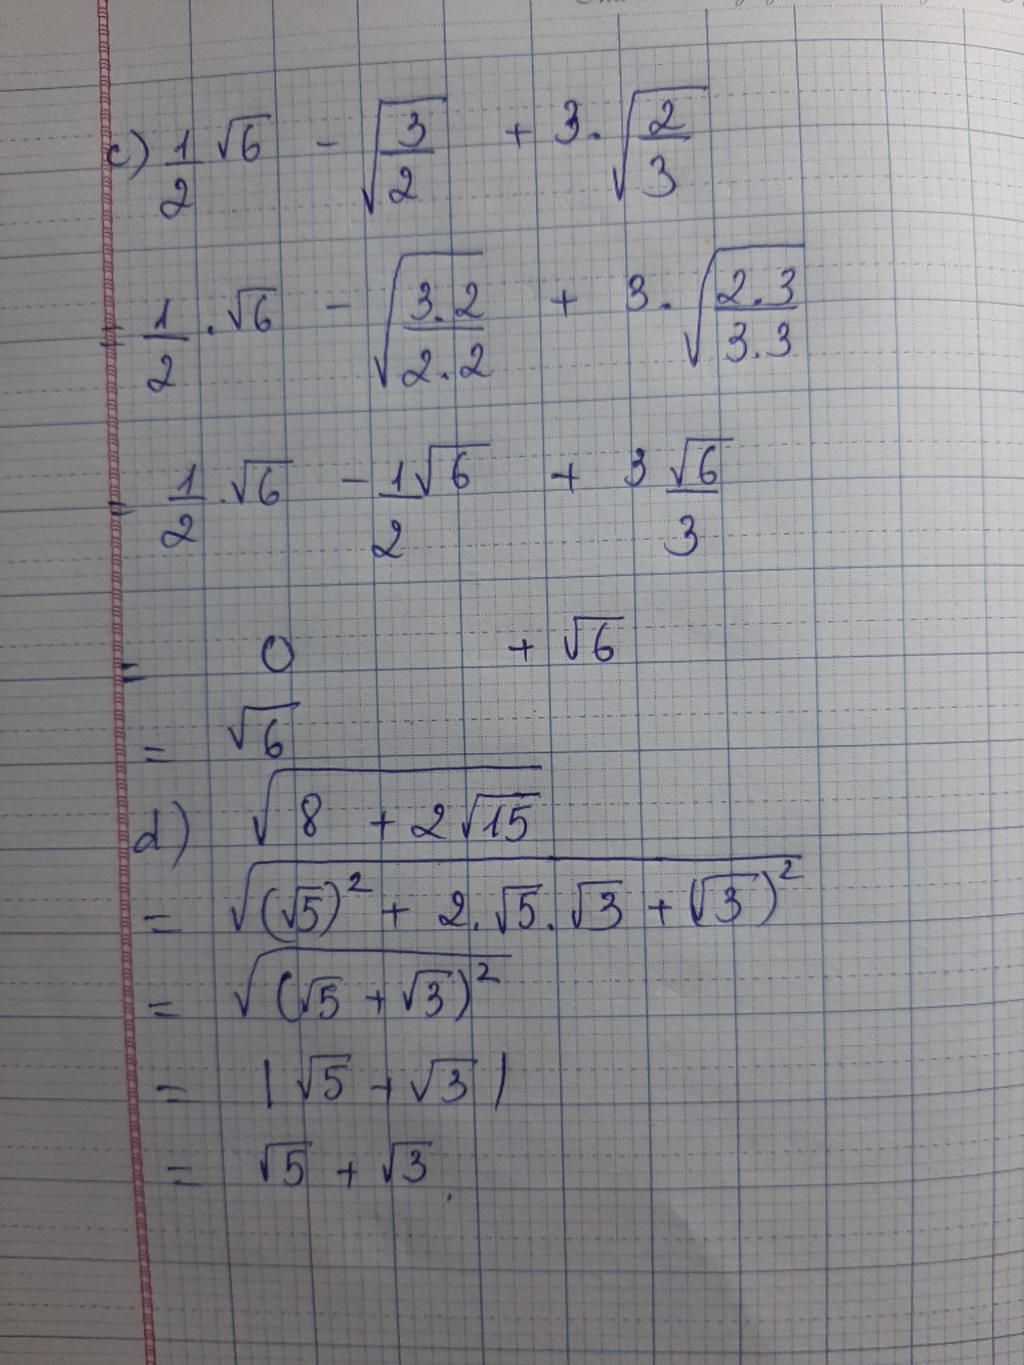 c) 1/2 √6 - √(3/2) + 3. √(2/3)
= 1/2 . √6 - √(3.2/2.2) + 3. √(2.3/3.3)
= 1/2 . √6 - 1/2 √6 + 3 √6/3
= 0 + √6
= √6
d) √(8 + 2√15)
= √((√5)² + 2.√5.√3 + (√3)²)
= √((√5 + √3)²)
= |√5 + √3|
= √5 + √3.